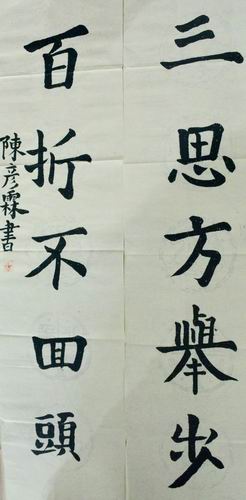 三思方舉步
百折不回頭
陳彥霖書